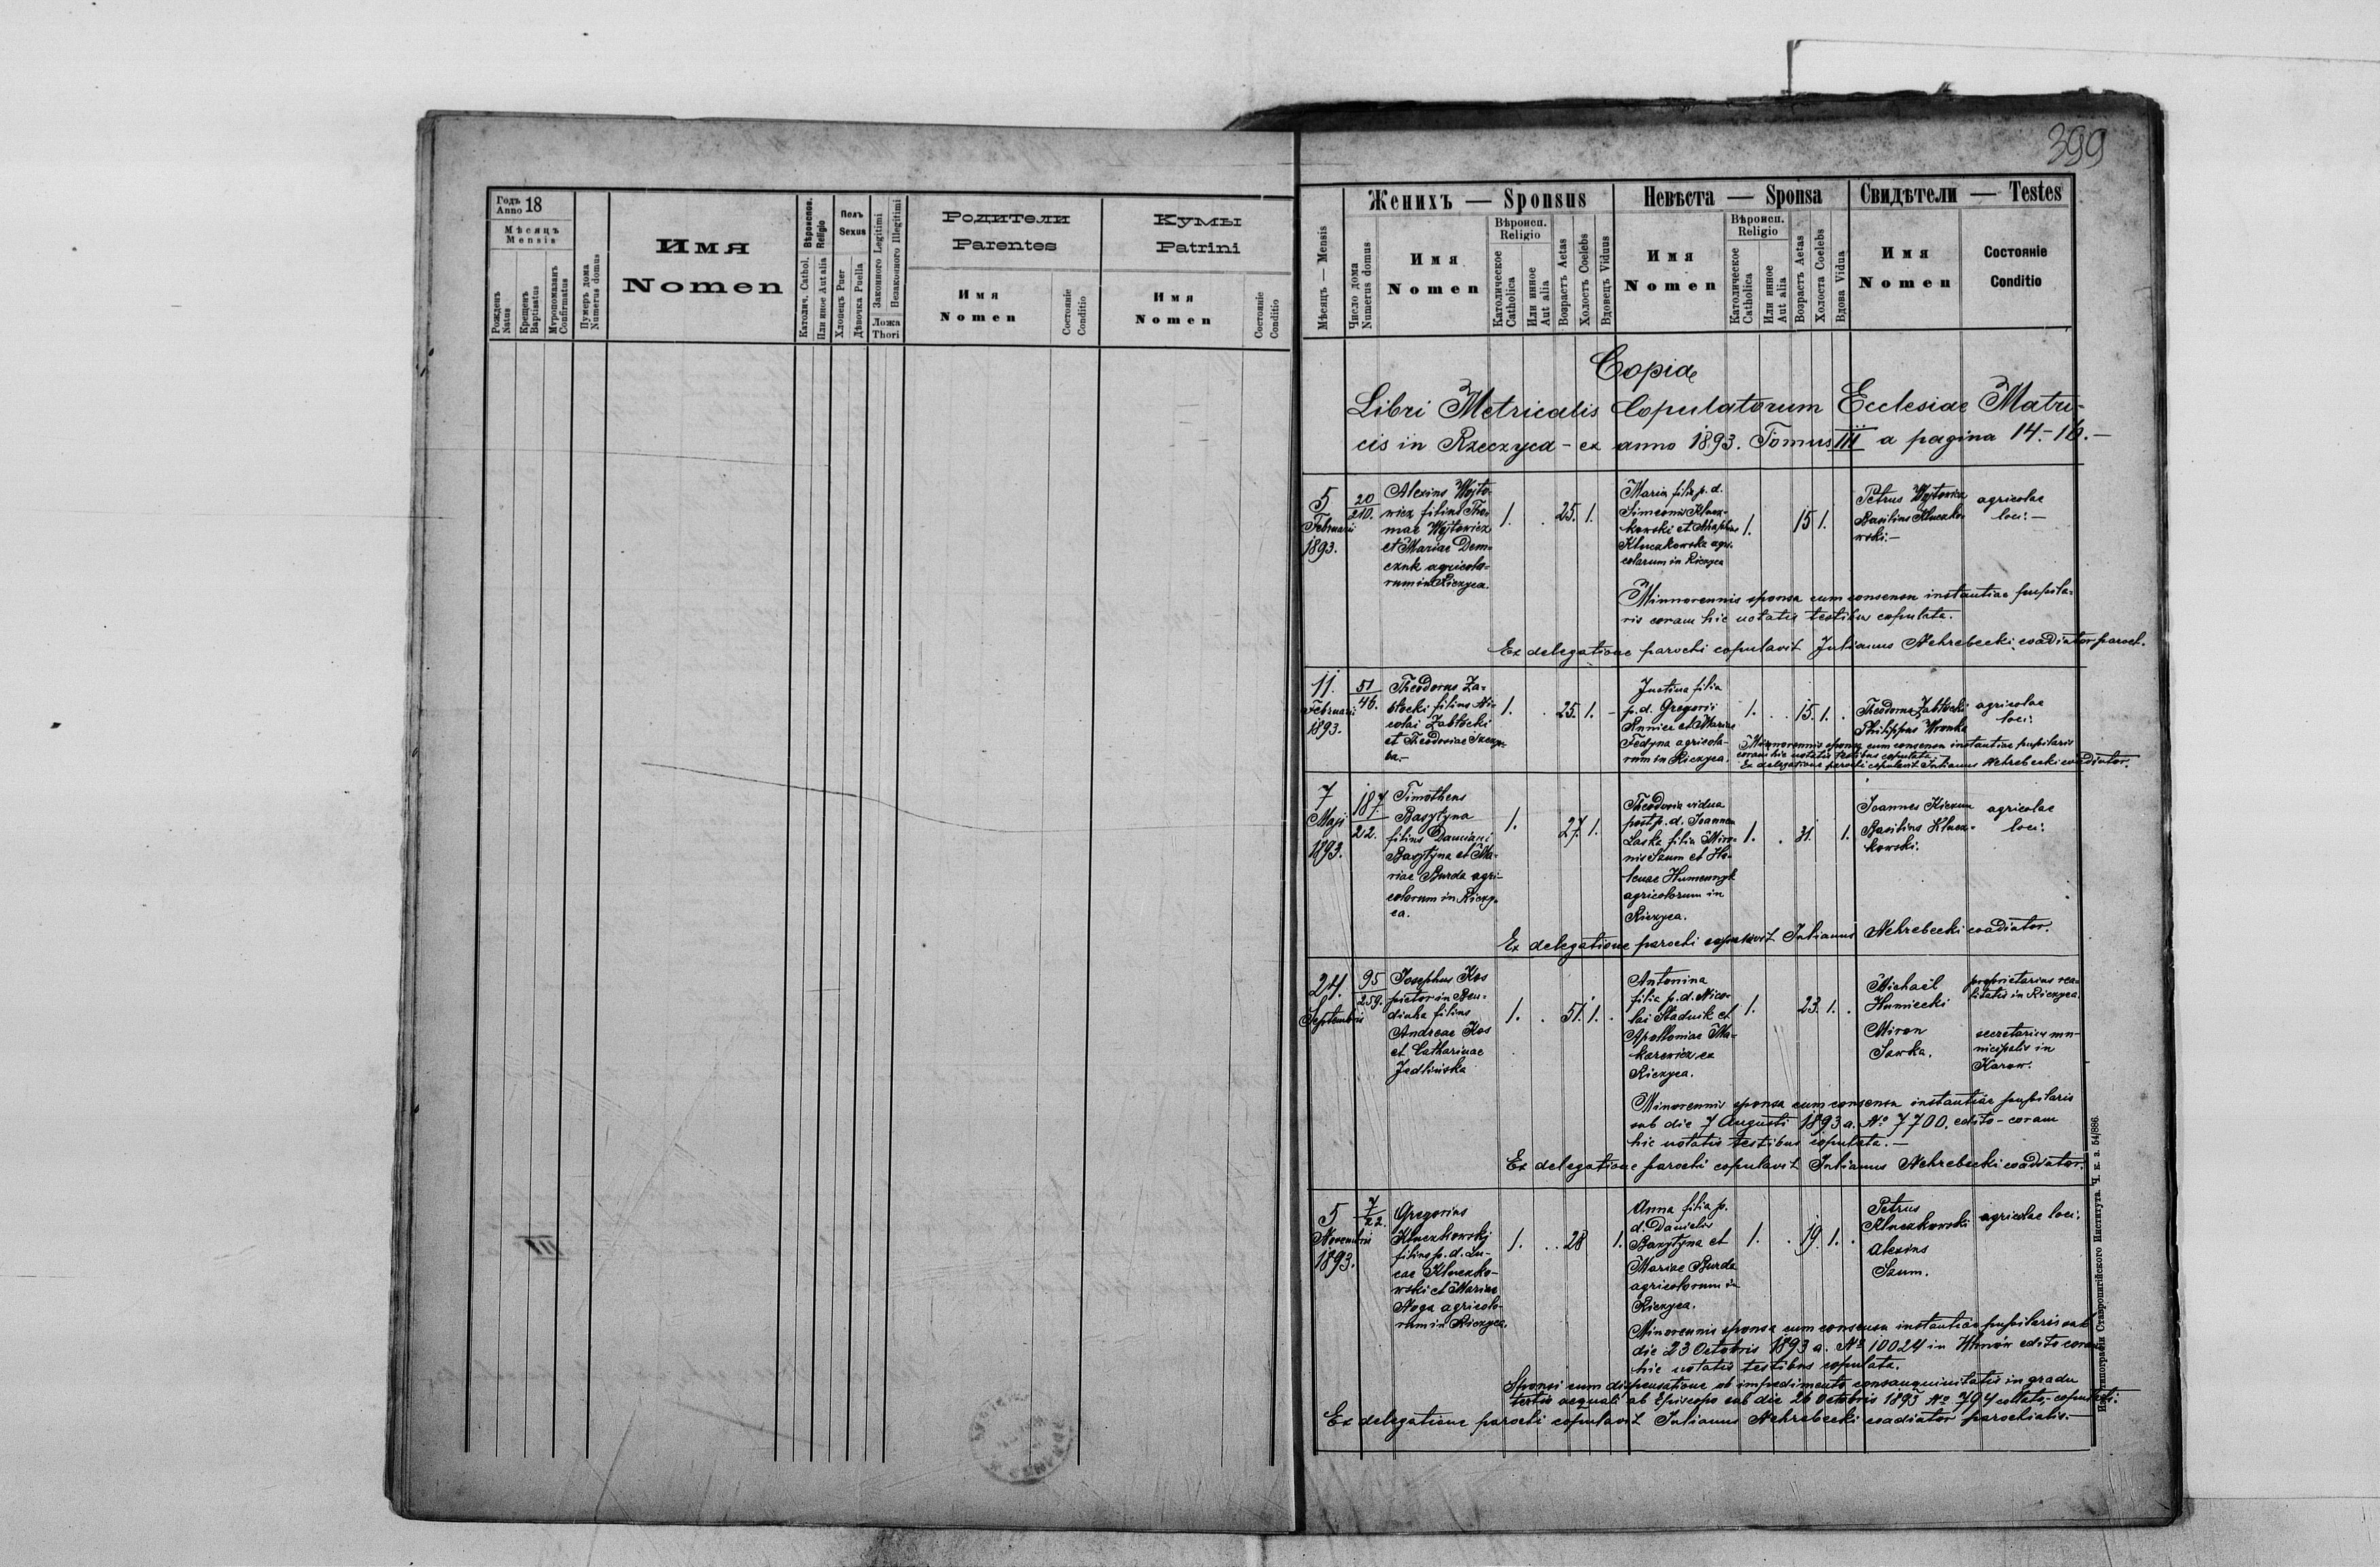 399
Годъ Anno 18
Мѣсяцъ Mensis
Рожденъ Natus
Крещенъ Baptisatus
Мѵропомазанъ Confirmatus
Нумеръ дома Numerus domus
Имя
Nomen
Вѣроиспов. Religio
Католич. Cathol.
Или иное Aut alia
Полъ Sexus
Хлопецъ Puer
Дѣвочка Puella
Законного Legitimi
Незаконного Illegitimi
Ложа Thori
Родители
Parentes
Имя
Nomen
Состояніе Conditio
Кумы
Patrini
Имя
Nomen
Состояніе Conditio
III
Мѣсяцъ — Mensis
Число дома Numerus domus
Женихъ — Sponsus
Имя
Nomen
Вѣроисп. Religio
Католическое Catholica
Или инное Aut alia
Возрастъ Aetas
Холостъ Coelebs
Вдовецъ Viduus
Невѣста — Sponsa
Имя
Nomen
Вѣроисп. Religio
Католическое Catholica
Или инное Aut alia
Возрастъ Aetas
Холоста Coelebs
Вдова Vidua
Свидѣтели — Testes
Имя
Nomen
Состояніе
Conditio
Copia
Libri Metricalis Copulatorum Ecclesiae Matri-
cis in Rzeczyca - ex anno 1893. Tomus III a pagina 14.-16.-
5
Februarii
1893.
20
210.
Alexius Wojto-
wicz filius Tho-
mae Wojtowicz
et Mariae Dem-
czuk agricola-
rum in Rieczyca.
1. . 25. 1.
Maria filia p. d.
Simeonis Klucz-
kowski et
Kluczkowska agri-
colarum in Rieczyca
1. 15 1.
Petrus Wojtowicz
Basilius Kluczko-
wski.-
agricolae
loci.-
Minnorennis sponsa cum consensu instantiae pupila-
ris coram hic notatis testibus copulata.
Ex delegatione parochi copulavit Julianus Nehrebecki coadiutor paroch.
11.
Februarii
1893.
51
46.
Theodorus Za-
błocki filius Ni-
colai Zabłocki
et Theodosiae
1. . 25. 1. -
Justina filia
p. d. Gregorii
et Mariae
Fedyna agricola-
rum in Rieczyca.
1. . . 15. 1. .
Theodorus Zabłocki
Philippus Wronka
agricolae
loci.
Minnorennis sponsa cum consensu instantiae pupilaris
coram hic notatis testibus copulata.
Ex delegatione parochi copulavit Julianus Nehrebecki coadiutor.
7
Maji
1893.
187
212.
Timotheus
Bazytyna
filius Damiani
Bazytyna et Ma-
riae Burda agri-
colorum in Rieczy-
ca.
1. 27. 1.
Theodosia vidua
post p. d. Joannem
Laska filia Miro-
nis Szum et He-
lenae Humennyk
agricolorum in
Rieczyca.
1. . 31. 1.
Joannes
Basilius Klucz-
kowski.
agricolae
loci.
Ex delegatione parochi copulavit Julianus Nehrebecki coadiutor.
24.
Septembris
95
259.
Josephus Kos
pictor in Ben-
diuha filius
Andreae Kos
et Catharinae
Jedlinska
1. . 51. 1. .
Antonina
filia p. d. Nico-
lai Stadnik et
Apolloniae Ma-
karewicz ex
Rieczyca.
1. 23. 1. .
Michaël
Humiecki
Miron
Sawka.
proprietarius rea-
litatis in Rieczyca.
secretarius mu-
nicipalis in
Karow.
Minorennis sponsa cum consensu instantiae pupilaris
sub die 7 Augusti 1893 a. No 7700. edito - coram
hic notatis testibus copulata.-
Ex delegatione parochi copulavit Julianus Nehrebecki coadiutor.
5
Novembris
1893.
7
22.
Gregorius
Kluczkowskj
filius p. d. Lu-
cae Kluczko-
wski et Mariae
Noga agricolo-
rum in Rieczyca.
1. . . 28 1.
Anna filia p.
d. Danielis
Bazytyna et
Mariae Burda
agricolorum in
Rieczyca.
1. . 19. 1. .
Petrus
Kluczkowski
Alexius
Szum.
agricolae loci.
Minorennis sponsa cum consensu instantiae pupilaris sub
die 23 Octobris 1893 a. No 10024 in Uhnów edito coram
hic notatis testibus copulata.
Sponsi cum dispensatione ob impedimento consanguinitatis in gradu
tertio aequali ab Episcopo sub die 26 Octobris 1893 No 794 collata - copulati.
Ex delegatione parochi copulavit Julianus Nehrebecki coadiutor parochialis.-
Изъ типографіи Ставропигійского Института. Ч. к. з. 54/886.